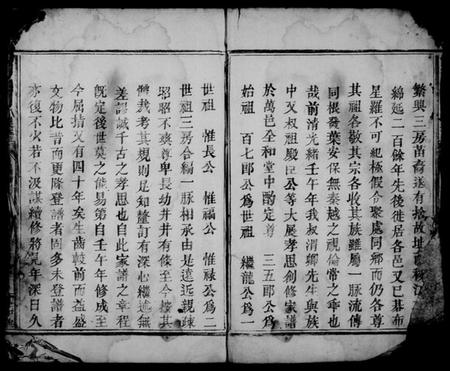 繁興三房苗裔迭有故址
綿延二百餘年先後徙居各邑又已碁布
星羅不可紀極假合聚處同鄉而仍各尊
其祖各敬其宗各收其族雖屬一脈流傳
同根舜葉安保無秦越之視倫常之乖也
哉前清光緒壬午年我叔渭卿先生與族
中又叔祖殿臣公等大展孝思創修家譜
於萬邑全和堂中酌定尊 三五郎公為
始祖 百七郎公為世祖 繼龍公為一
世祖 惟長公 惟福公 惟祿公為二
世祖三房合緝一脈相承由是遠近親疎
昭昭不爽尊卑長幼井井有條至今接其
譜我考其規則足知釐訂有深心繼述無
差謬誠千古之孝思也自此家譜之章程
既定後世莫之能易第自壬午年修成至
今屈指又有四十年矣生齒較前而益盛
文物比昔而更隆登譜者固多未登譜者
亦復不少若不汲謀續修將見年深日久